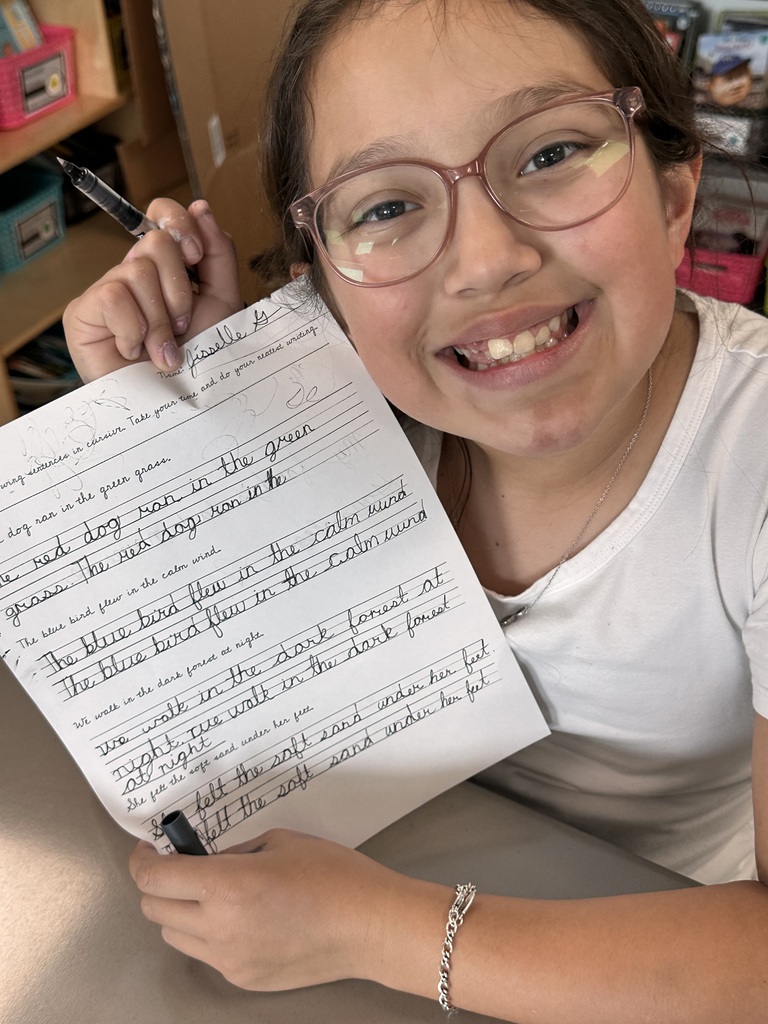 Name Jisselle G
wing sentences in cursive. Take your time and do your neatest writing.
dog ran in the green grass.
he red dog ran in the green
grass. The red dog ran in the
The blue bird flew in the calm wind.
The blue bird flew in the calm wind
The blue bird flew in the calm wind
We walk in the dark forest at night.
we walk in the dark forest at
night we walk in the dark forest
at night
She felt the soft sand under her feet.
felt the soft sand under her feet.
felt the soft sand under her feet